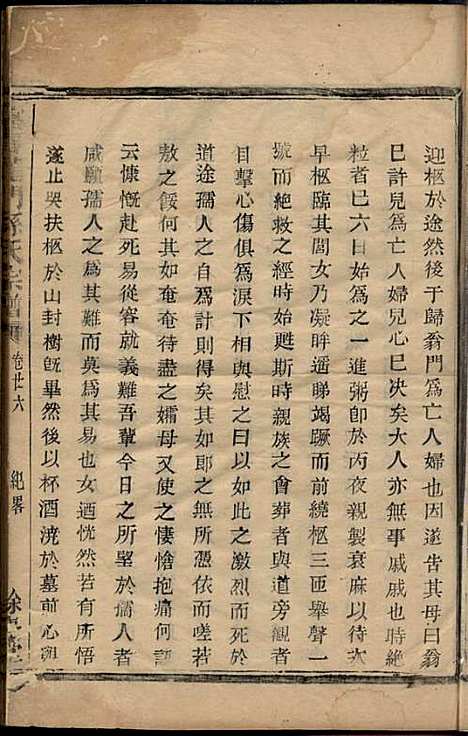 迎柩於途然後于歸翁門為亡人婦也因遂告其母曰翁
已許兒為亡人婦兒心已決矣大人亦無事戚戚也時絶
粒者已六日始為之一進粥卽於丙夜親製衰麻以待次
早柩臨其閭女乃凝眸遙睇竭蹶而前繞柩三匝舉聲一
號而絶救之經時始甦斯時親族之會葬者與道旁觀者
目擊心傷俱為淚下相與慰之曰以如此之激烈而死於
道途孺人之自為計則得矣其如郎之無所憑依而嗟若
敖之餒何其如奄奄待盡之孀母又使之悽愴抱痛何語
云慷慨赴死易從容就義難吾輩今日之所望於孺人者
咸願孺人之為其難而莫為其易也女迺恍然若有所悟
遂止哭扶柩於山封樹旣畢然後以杯酒澆於墓前心與
孫氏宗譜 卷廿六 紀畧